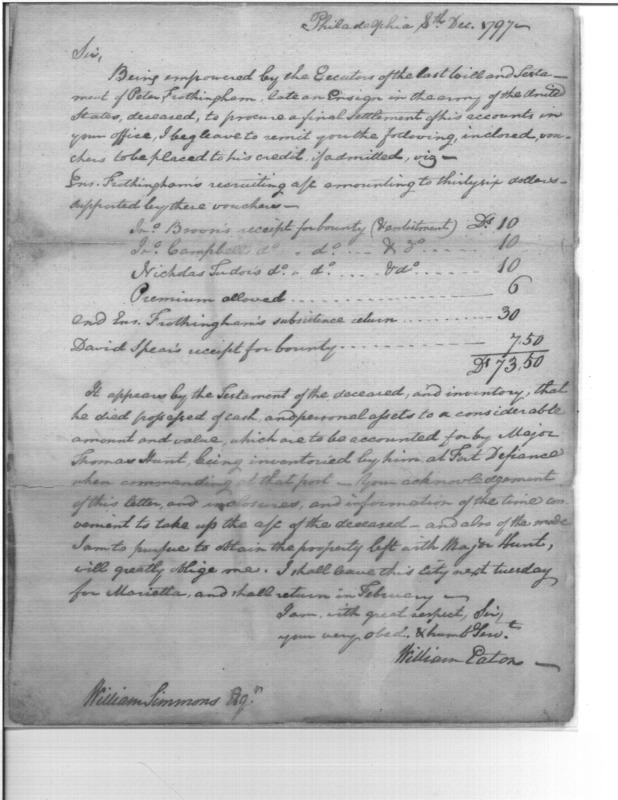 Philadelphia 8th. Dec. 1797—
Sir,
Being empowered by the Executors of the last Will and Testa-
ment of Peter Frothingham, late an Ensign in the army of the United
States, deceased, to procure a final settlement of his accounts in
your office, I beg leave to remit you the following, inclosed, vou-
chers to be placed to his credit, if admitted, viz—
Ens. Frothingham's recruiting a/c amounting to thirty six dollars—
supported by these vouchers—
Jno. Brown's receipt for bounty (& enlistment) Ds. 10
Jno. Campbell do. " do. ... & do. ... 10
Nicholas Tudors do. " do. ... & do. ... 10
Premium allowed ... 6
and Ens. Frothingham's subsistence return ... 30
David Spear's receipt for bounty ... 7.50
Ds 73.50
It appears by the Testament of the deceased, and inventory, that
he died possessed of cash, and personal assets to a considerable
amount and value, which are to be accounted for by Major
Thomas Hunt, being inventoried by him at Fort Defiance
when commanding at that post — Your acknowledgement
of this letter, and inclosures, and information of the time con-
vement to take up the a/c of the deceased — and also of the mode
I am to pursue to obtain the property left with Major Hunt,
will greatly oblige me. I shall leave this City next tuesday
for Marietta, and shall return in February —
I am, with great respect, Sir,
your very obed. & humb Servt.
William Eaton —
William Simmons Esqr.